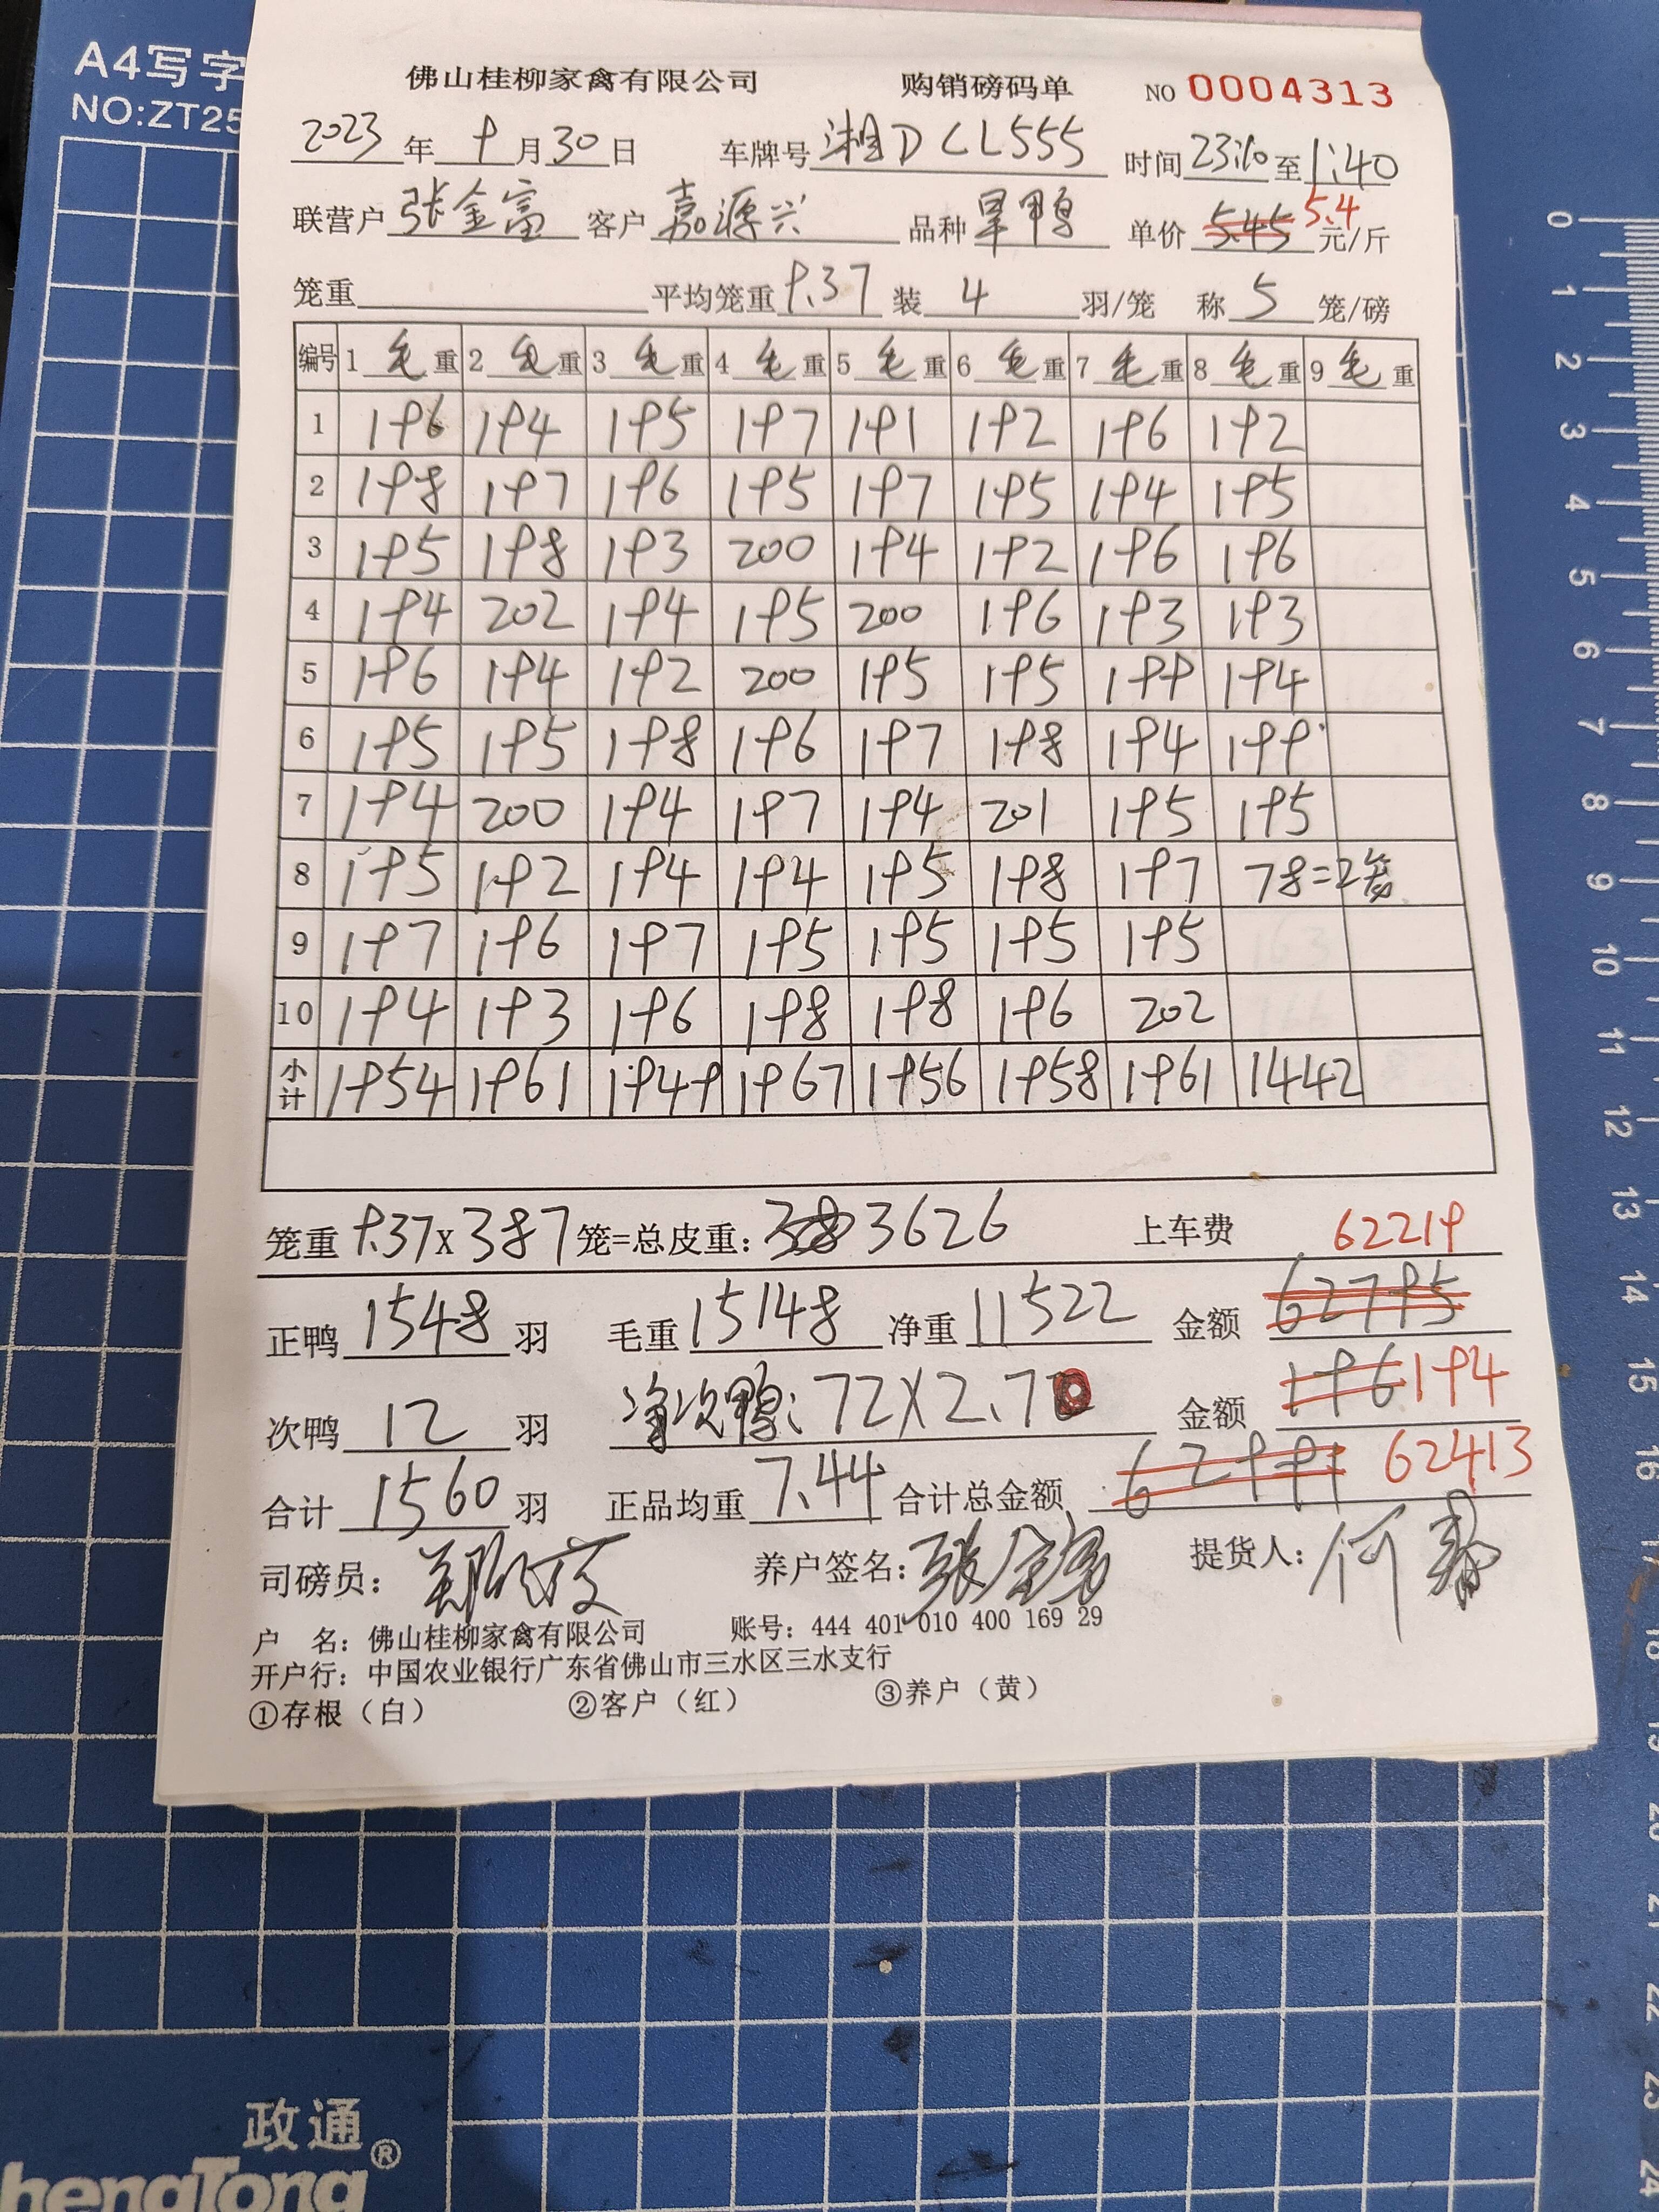 A4写字
NO:ZT25
佛山桂柳家禽有限公司 购销磅码单 NO 0004313
2023年9月30日 车牌号湘DCL555 时间23:10至1:40
联营户张金富 客户嘉源兴 品种旱鸭 单价5.45 5.4元/斤
笼重 平均笼重9.37装4羽/笼 称5笼/磅
编号 1毛重 2毛重 3毛重 4毛重 5毛重 6毛重 7毛重 8毛重 9毛重
1 196 194 195 197 191 192 196 192
2 198 197 196 195 197 195 194 195
3 195 198 193 200 194 192 196 196
4 194 202 194 195 200 196 193 193
5 196 194 192 200 195 195 199 194
6 195 195 198 196 197 198 194 199
7 194 200 194 197 194 201 195 195
8 195 192 194 194 195 198 197 78=2笼
9 197 196 197 195 195 195 195
10 194 193 196 198 198 196 202
小计 1954 1961 1949 1967 1956 1958 1961 1442
笼重9.37x387笼=总皮重:3626 上车费 62219
正鸭1548羽 毛重15148 净重11522 金额62795
次鸭12羽 净次鸭:72X2.7 金额196 194
合计1560羽 正品均重7.44 合计总金额62991 62413
司磅员: 养户签名:张金富 提货人:何
户 名:佛山桂柳家禽有限公司 账号:444 401 010 400 169 29
开户行:中国农业银行广东省佛山市三水区三水支行
①存根（白） ②客户（红） ③养户（黄）
0
1
2
3
4
5
6
7
8
9
10
11
12
13
14
15
16
17
18
19
20
21
22
23
24
政通®
hengTong